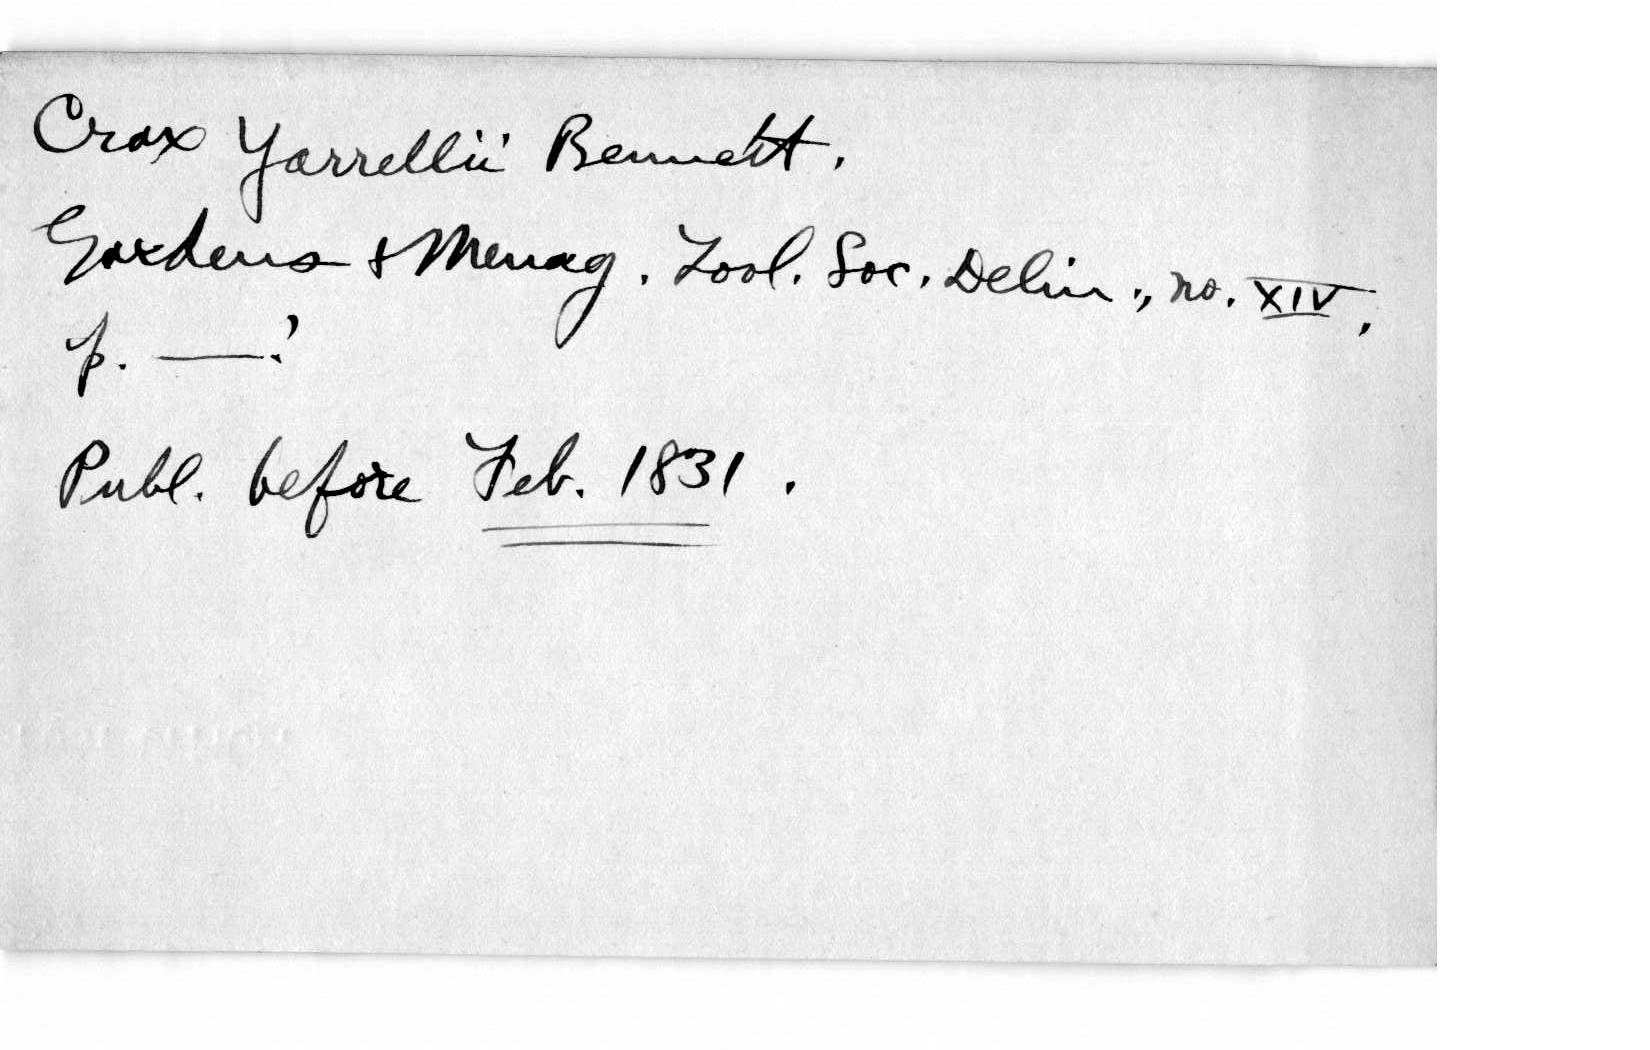 Crax Yarrellii Bennett.
Gardens & Menag. Zool. Soc. Delin., no. XIV,
p. —?
Publ. before Feb. 1831.